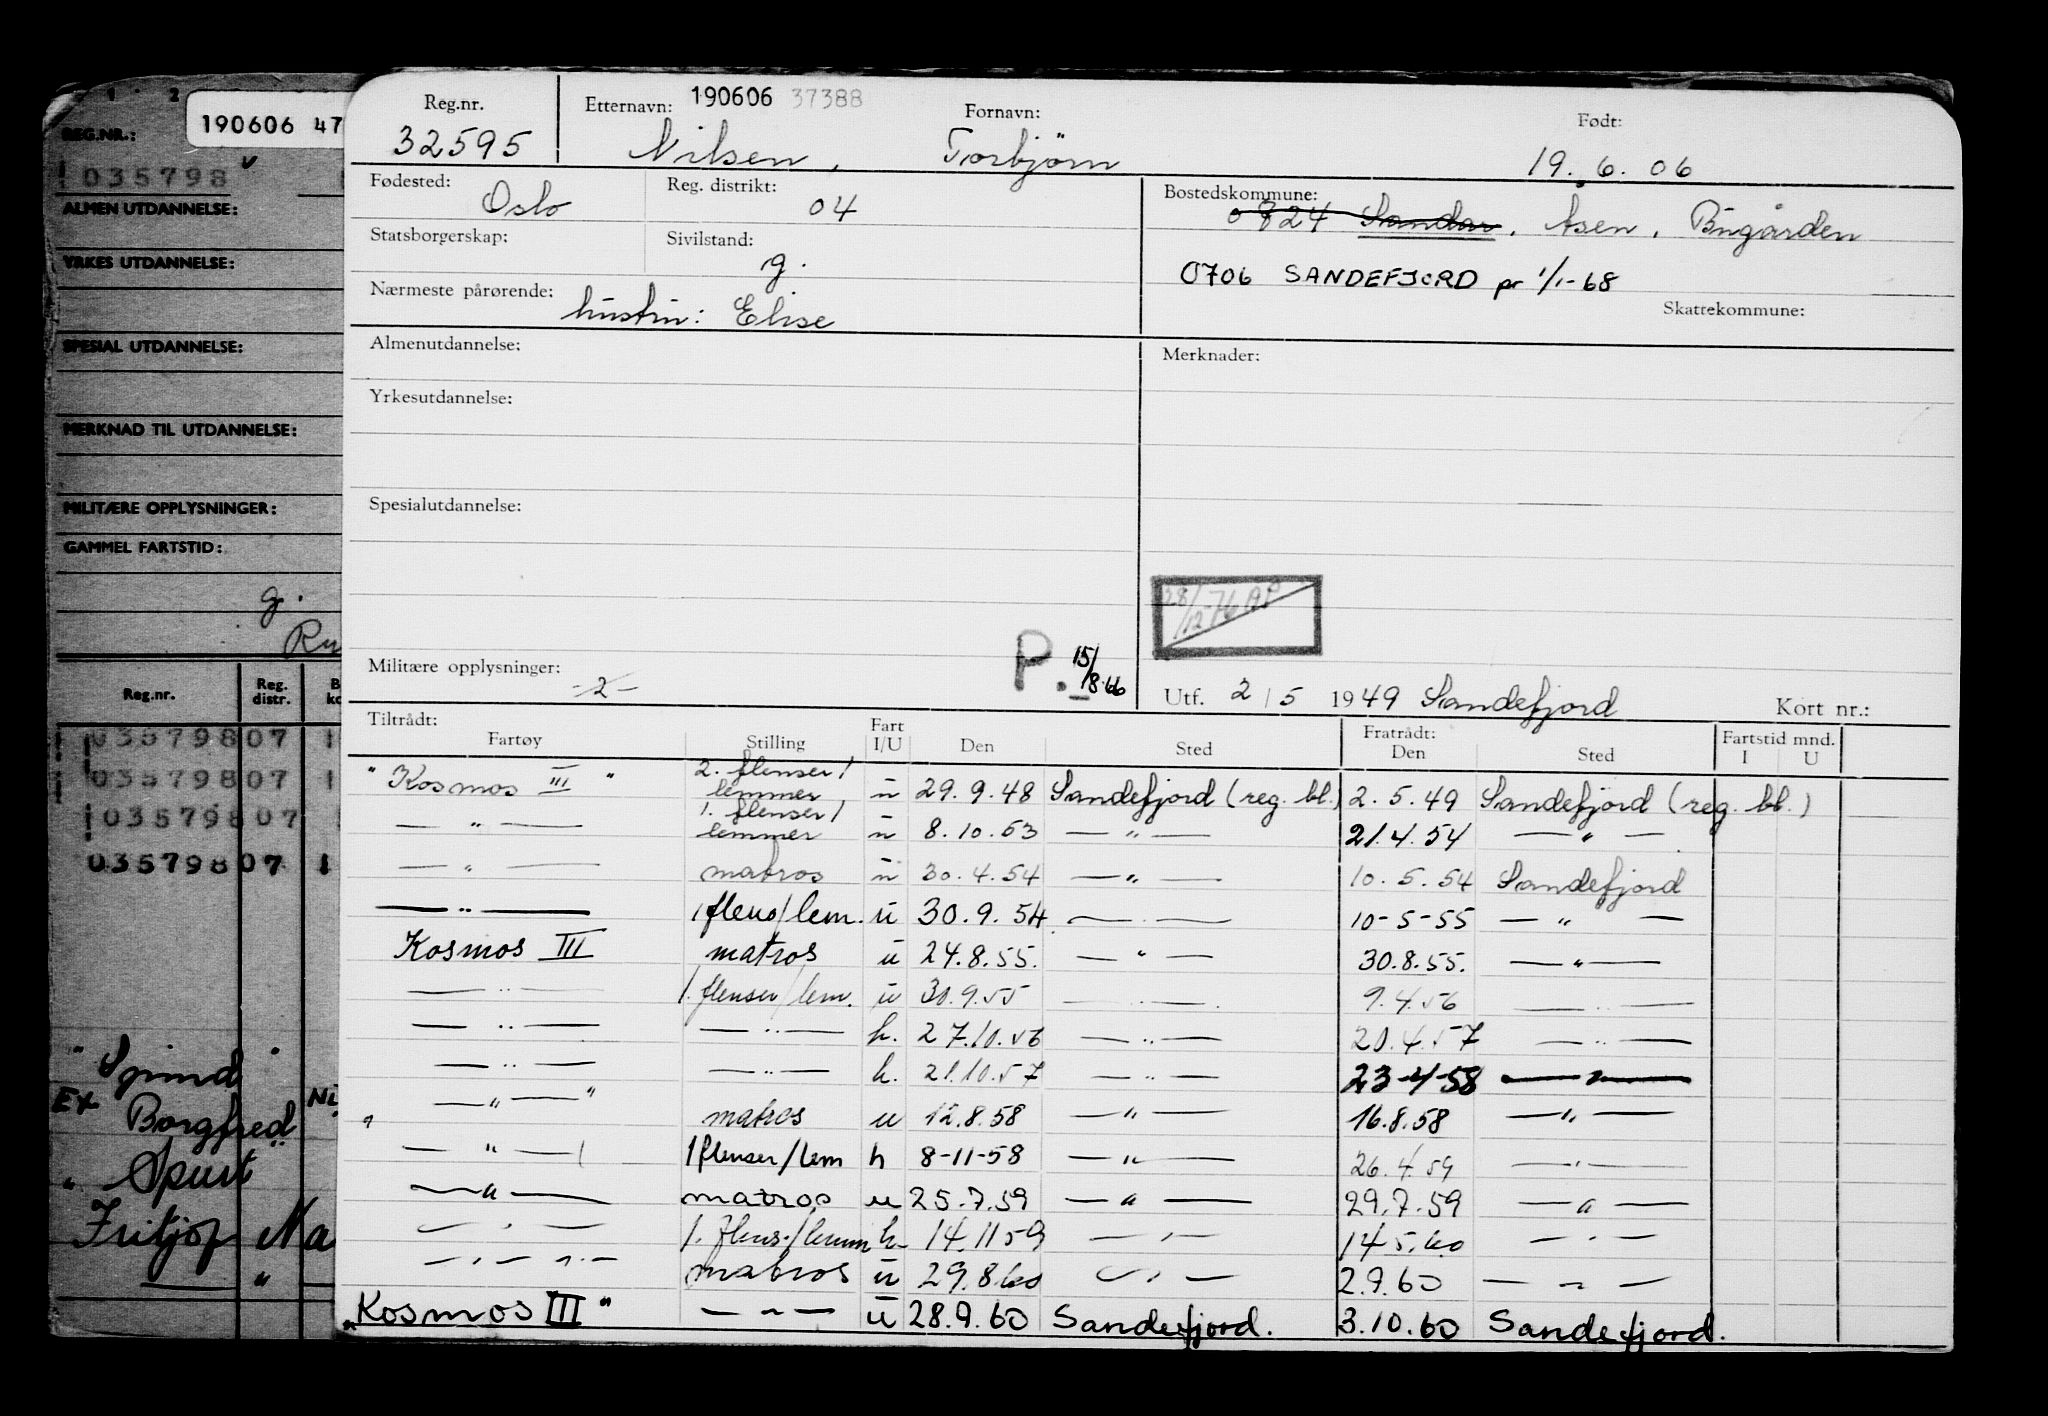 1 2
REG.NR.:
190606 47
035798
ALMEN UTDANNELSE:
YRKES UTDANNELSE:
SPESIAL UTDANNELSE:
MERKNAD TIL UTDANNELSE:
MILITÆRE OPPLYSNINGER:
GAMMEL FARTSTID:
g.
Reg.nr. Reg. distr.
03579807 1
03579807 1
03579807
03579807 1
Ex
Borgfred
" Spurt "
Fritjof Na
"
Reg.nr. Etternavn: 190606 37388 Fornavn: Født:
32595 Nilsen, Torbjörn 19.6.06
Fødested: Oslo Reg. distrikt: 04 Bostedskommune: 0824 Sandar, Åsen, Bugården
Statsborgerskap: Sivilstand: g.
0706 SANDEFJORD pr 1/1-68
Nærmeste pårørende: hustru: Elise Skattekommune:
Almenutdannelse: Merknader:
Yrkesutdannelse:
Spesialutdannelse:
28/12-76
Militære opplysninger: -2- P. 15/8.66
Utf. 2/5 1949 Sandefjord Kort nr.:
Tiltrådt: Fratrådt: Fartstid mnd.
Fartøy Stilling Fart I/U Den Sted Den Sted I U
"Kosmos III" 2. flenser/lemmer u 29.9.48 Sandefjord (reg. bl.) 2.5.49 Sandefjord (reg. bl.)
— " — 1. flenser/lemmer u 8.10.53 — " — 21.4.54 — " —
— " — matros u 30.4.54 — " — 10.5.54 Sandefjord
— " — 1 flens/lem. u 30.9.54 — . — 10-5-55 — " —
Kosmos III matros u 24.8.55. — " — 30.8.55. — " —
— " — 1. flenser/lem. u 30.9.55 — . — 9.4.56 — " —
— " — — " — h. 27.10.56 — " — 20.4.57 — " —
— " — — " — h. 21.10.57 — " — 23-4-58 — " —
" — " — " matros u 12.8.58 — " — 16.8.58 — " —
— " — 1 flenser/lem h 8-11-58 — " — 26.4.59 — " —
— " — matros u 25.7.59 — " — 29.7.59 — " —
— " — 1. flens./lemm h 14.11.59 — " — 14.5.60 — " —
— " — " — matros u 29.8.60 — " — 2.9.60 — " —
"Kosmos III" — " — u 28.9.60 Sandefjord. 3.10.60 Sandefjord.